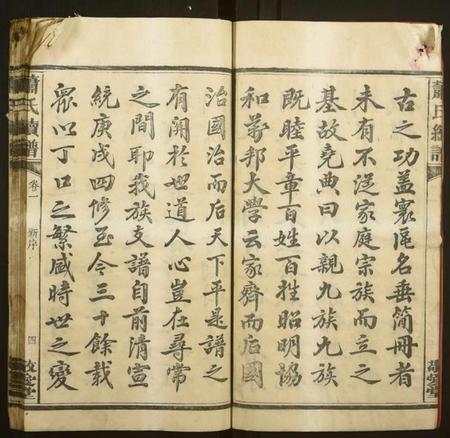 蕭氏續譜
古之功蓋寰區名垂簡冊者
未有不從家庭宗族而立之
基故堯典曰以親九族九族
既睦平章百姓百姓昭明協
和萬邦大學云家齊而后國
治國治而后天下平是譜之
有關於世道人心豈在尋常
之間耶我族支譜自前清宣
統庚戌四修至今三十餘載
眾以丁口之繁盛時世之變
蕭氏續譜 卷一 新序 四